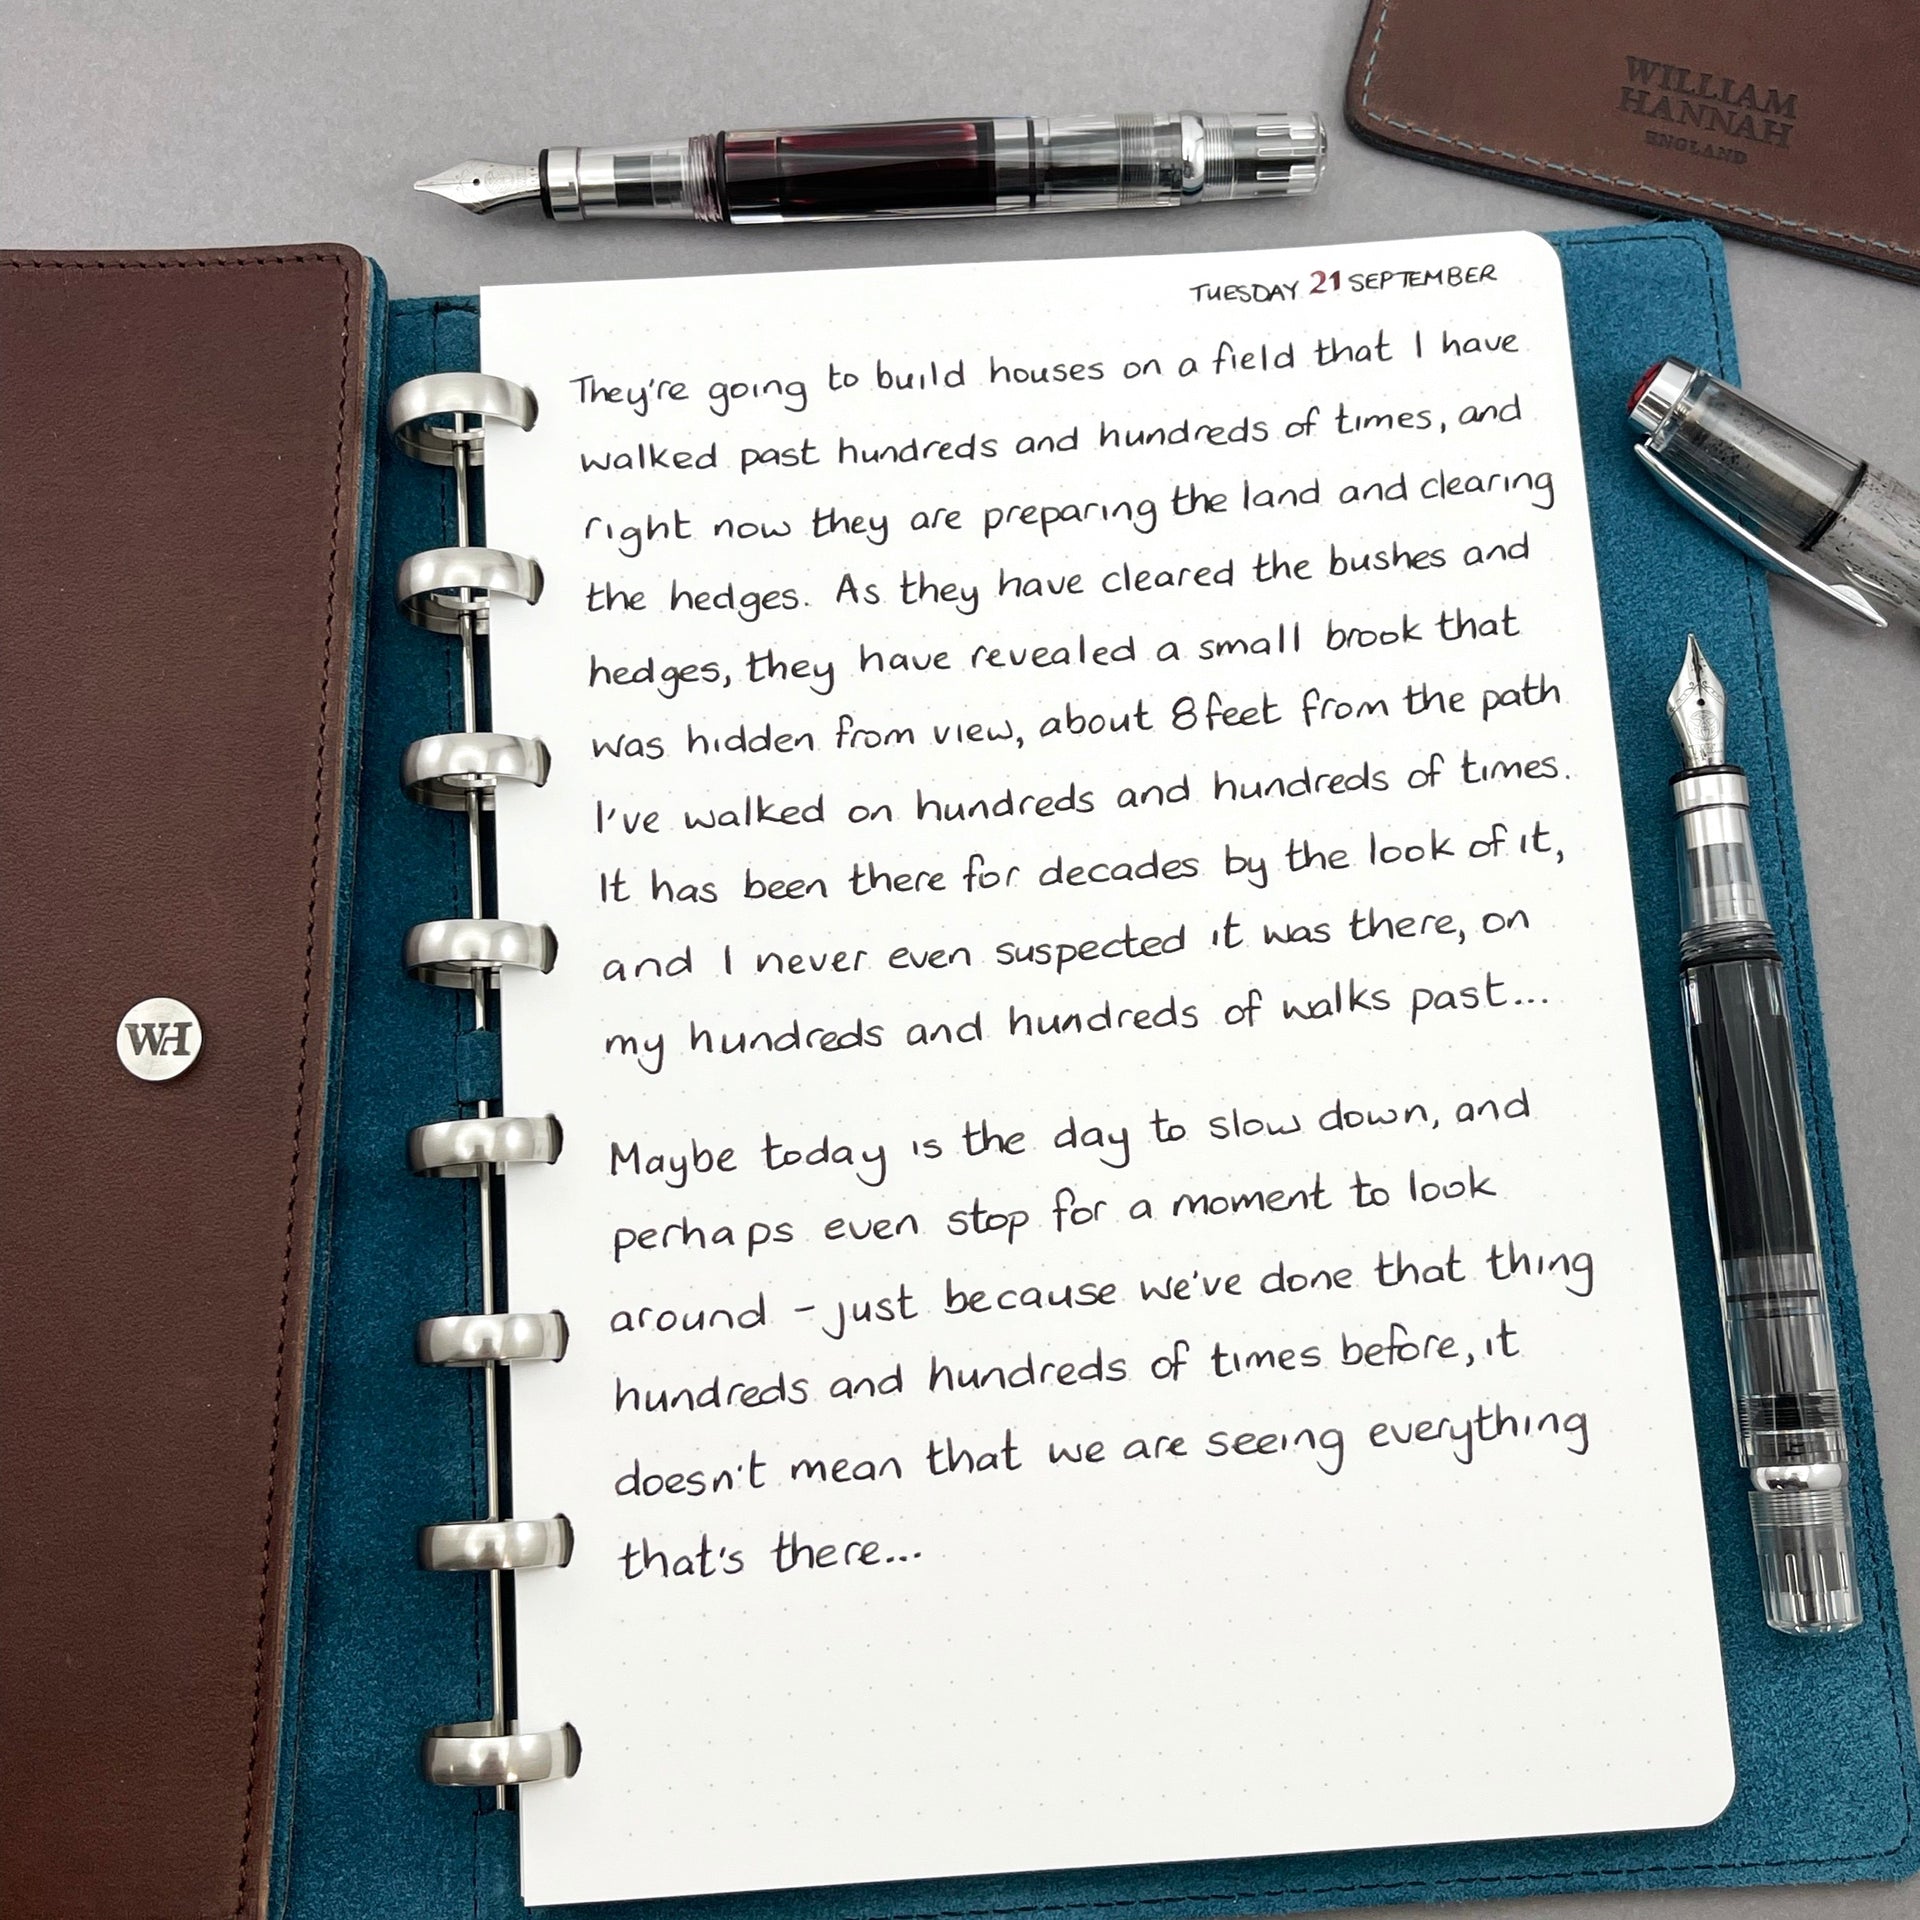 WILLIAM
HANNAH
ENGLAND
TUESDAY 21 SEPTEMBER
They're going to build houses on a field that I have
walked past hundreds and hundreds of times, and
right now they are preparing the land and clearing
the hedges. As they have cleared the bushes and
hedges, they have revealed a small brook that
was hidden from view, about 8 feet from the path
I've walked on hundreds and hundreds of times.
It has been there for decades by the look of it,
and I never even suspected it was there, on
my hundreds and hundreds of walks past...
Maybe today is the day to slow down, and
perhaps even stop for a moment to look
around - just because we've done that thing
hundreds and hundreds of times before, it
doesn't mean that we are seeing everything
that's there...
WH